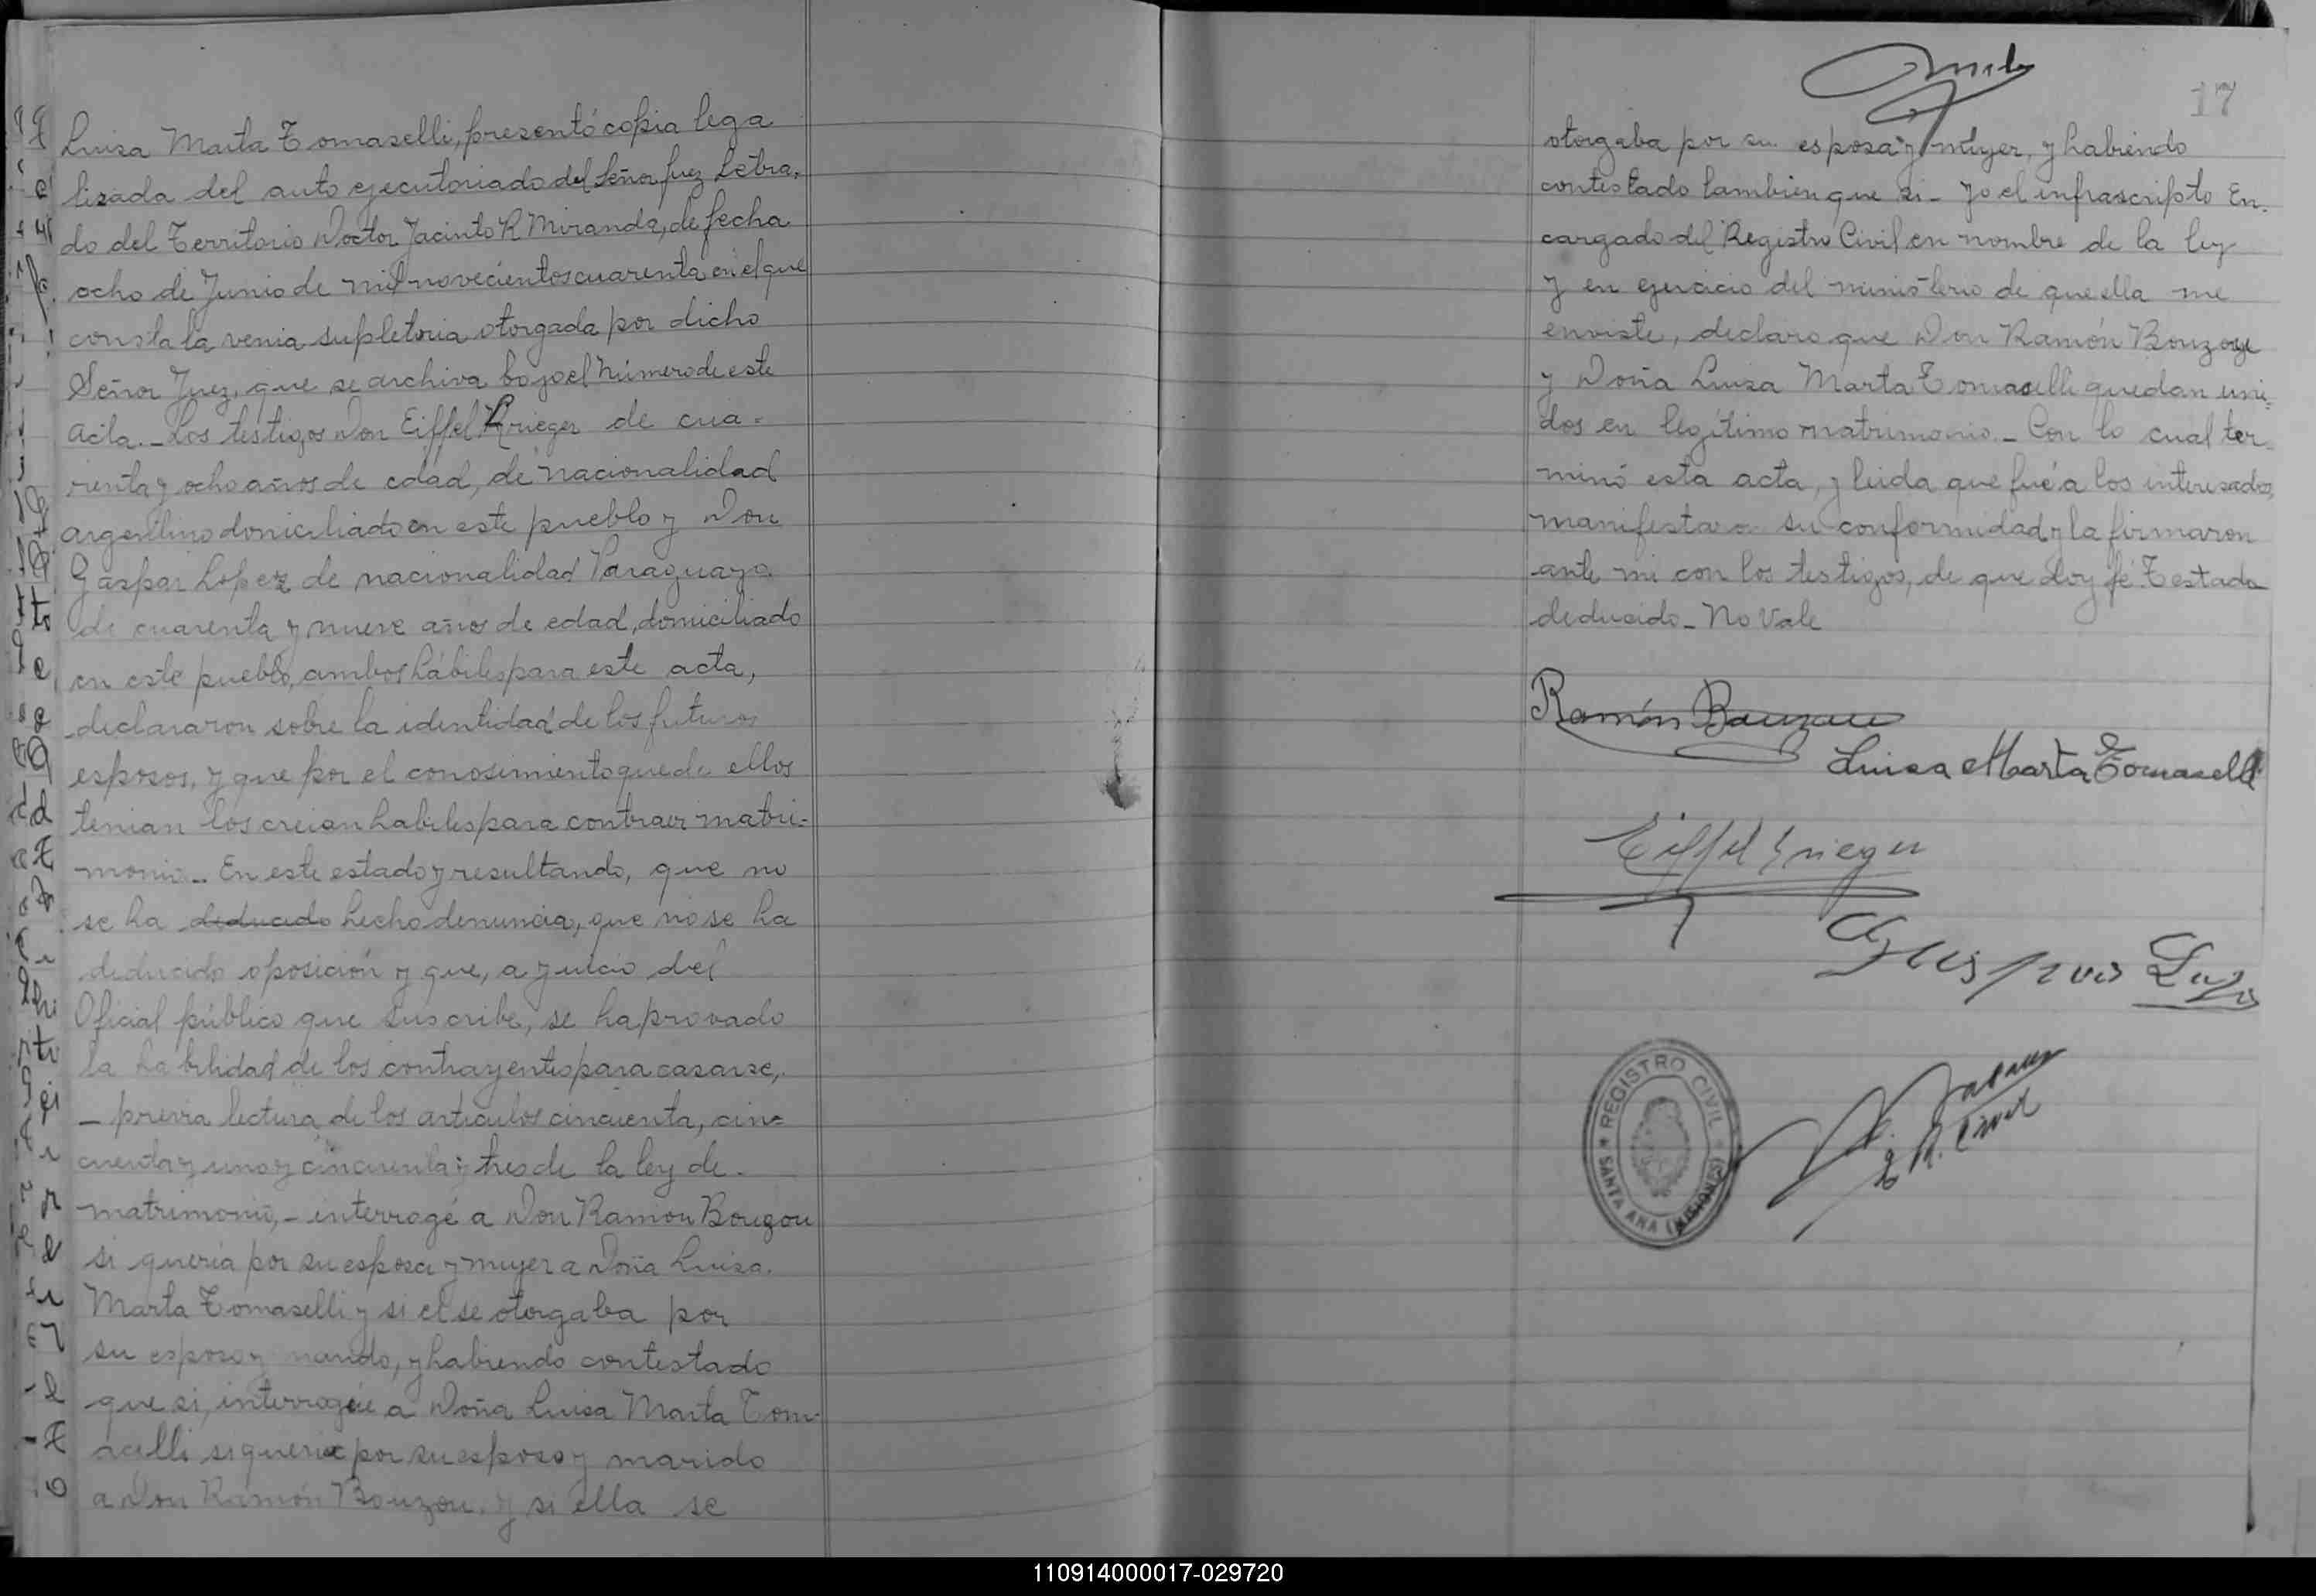 Luisa Marta Tomaselli, presentó copia lega
lizada del auto ejecutoriado del Señor Juez Letra,
do del Territorio Doctor Jacinto R Miranda, de fecha
ocho de Junio de mil novecientos cuarenta en el que
consta la venia supletoria otorgada por dicho
Señor Juez, que se archiva bajo el número de este
acta.- Los testigos Don Eiffel Krieger de cua-
renta y ocho años de edad, de nacionalidad
argentino domiciliado en este pueblo y Don
Gaspar Lopez de nacionalidad Paraguaya
de cuarenta y nueve años de edad, domiciliado
en este pueblo, ambos hábiles para este acta,
declararon sobre la identidad de los futuros
esposos, y que por el conosimiento que de ellos
tenian los creian habiles para contraer matri-
monio.- En este estado y resultando, que no
se ha deducido hecho denuncia, que no se ha
deducido oposición y que, a juicio del
Oficial público que suscribe, se ha provado
la habilidad de los contrayentes para casarse,
- previa lectura de los artículos cincuenta, cin-
cuenta y uno y cincuenta y tres de la ley de
matrimonio,- interrogé a Don Ramón Bouzou
si quería por su esposa y mujer a Doña Luisa
Marta Tomaselli y si el se otorgaba por
su esposo y marido, y habiendo contestado
que si, interrogée a Doña Luisa Marta Tom-
acelli si queria por su esposo y marido
a Don Ramón Bouzou, y si ella se
17
otorgaba por su esposa y mujer, y habiendo
contestado tambien que si- yo el infrascripto En-
cargado del Registro Civil en nombre de la ley
y en ejercicio del ministerio de que ella me
enviste, declaro que Don Ramón Bouzou
y Doña Luisa Marta Tomaselli quedan uni-
dos en legítimo matrimonio.- Con lo cual ter-
minó esta acta, y leida que fué a los interesados,
manifestaron su conformidad y la firmaron
ante mi con los testigos, de que doy fé. Testado
deducido- No Vale
Ramón Bouzou
Luisa Marta Tomaselli
Eiffel Krieger
REGISTRO CIVIL
SANTA ANA (MISIONES)
R. Civil
110914000017-029720